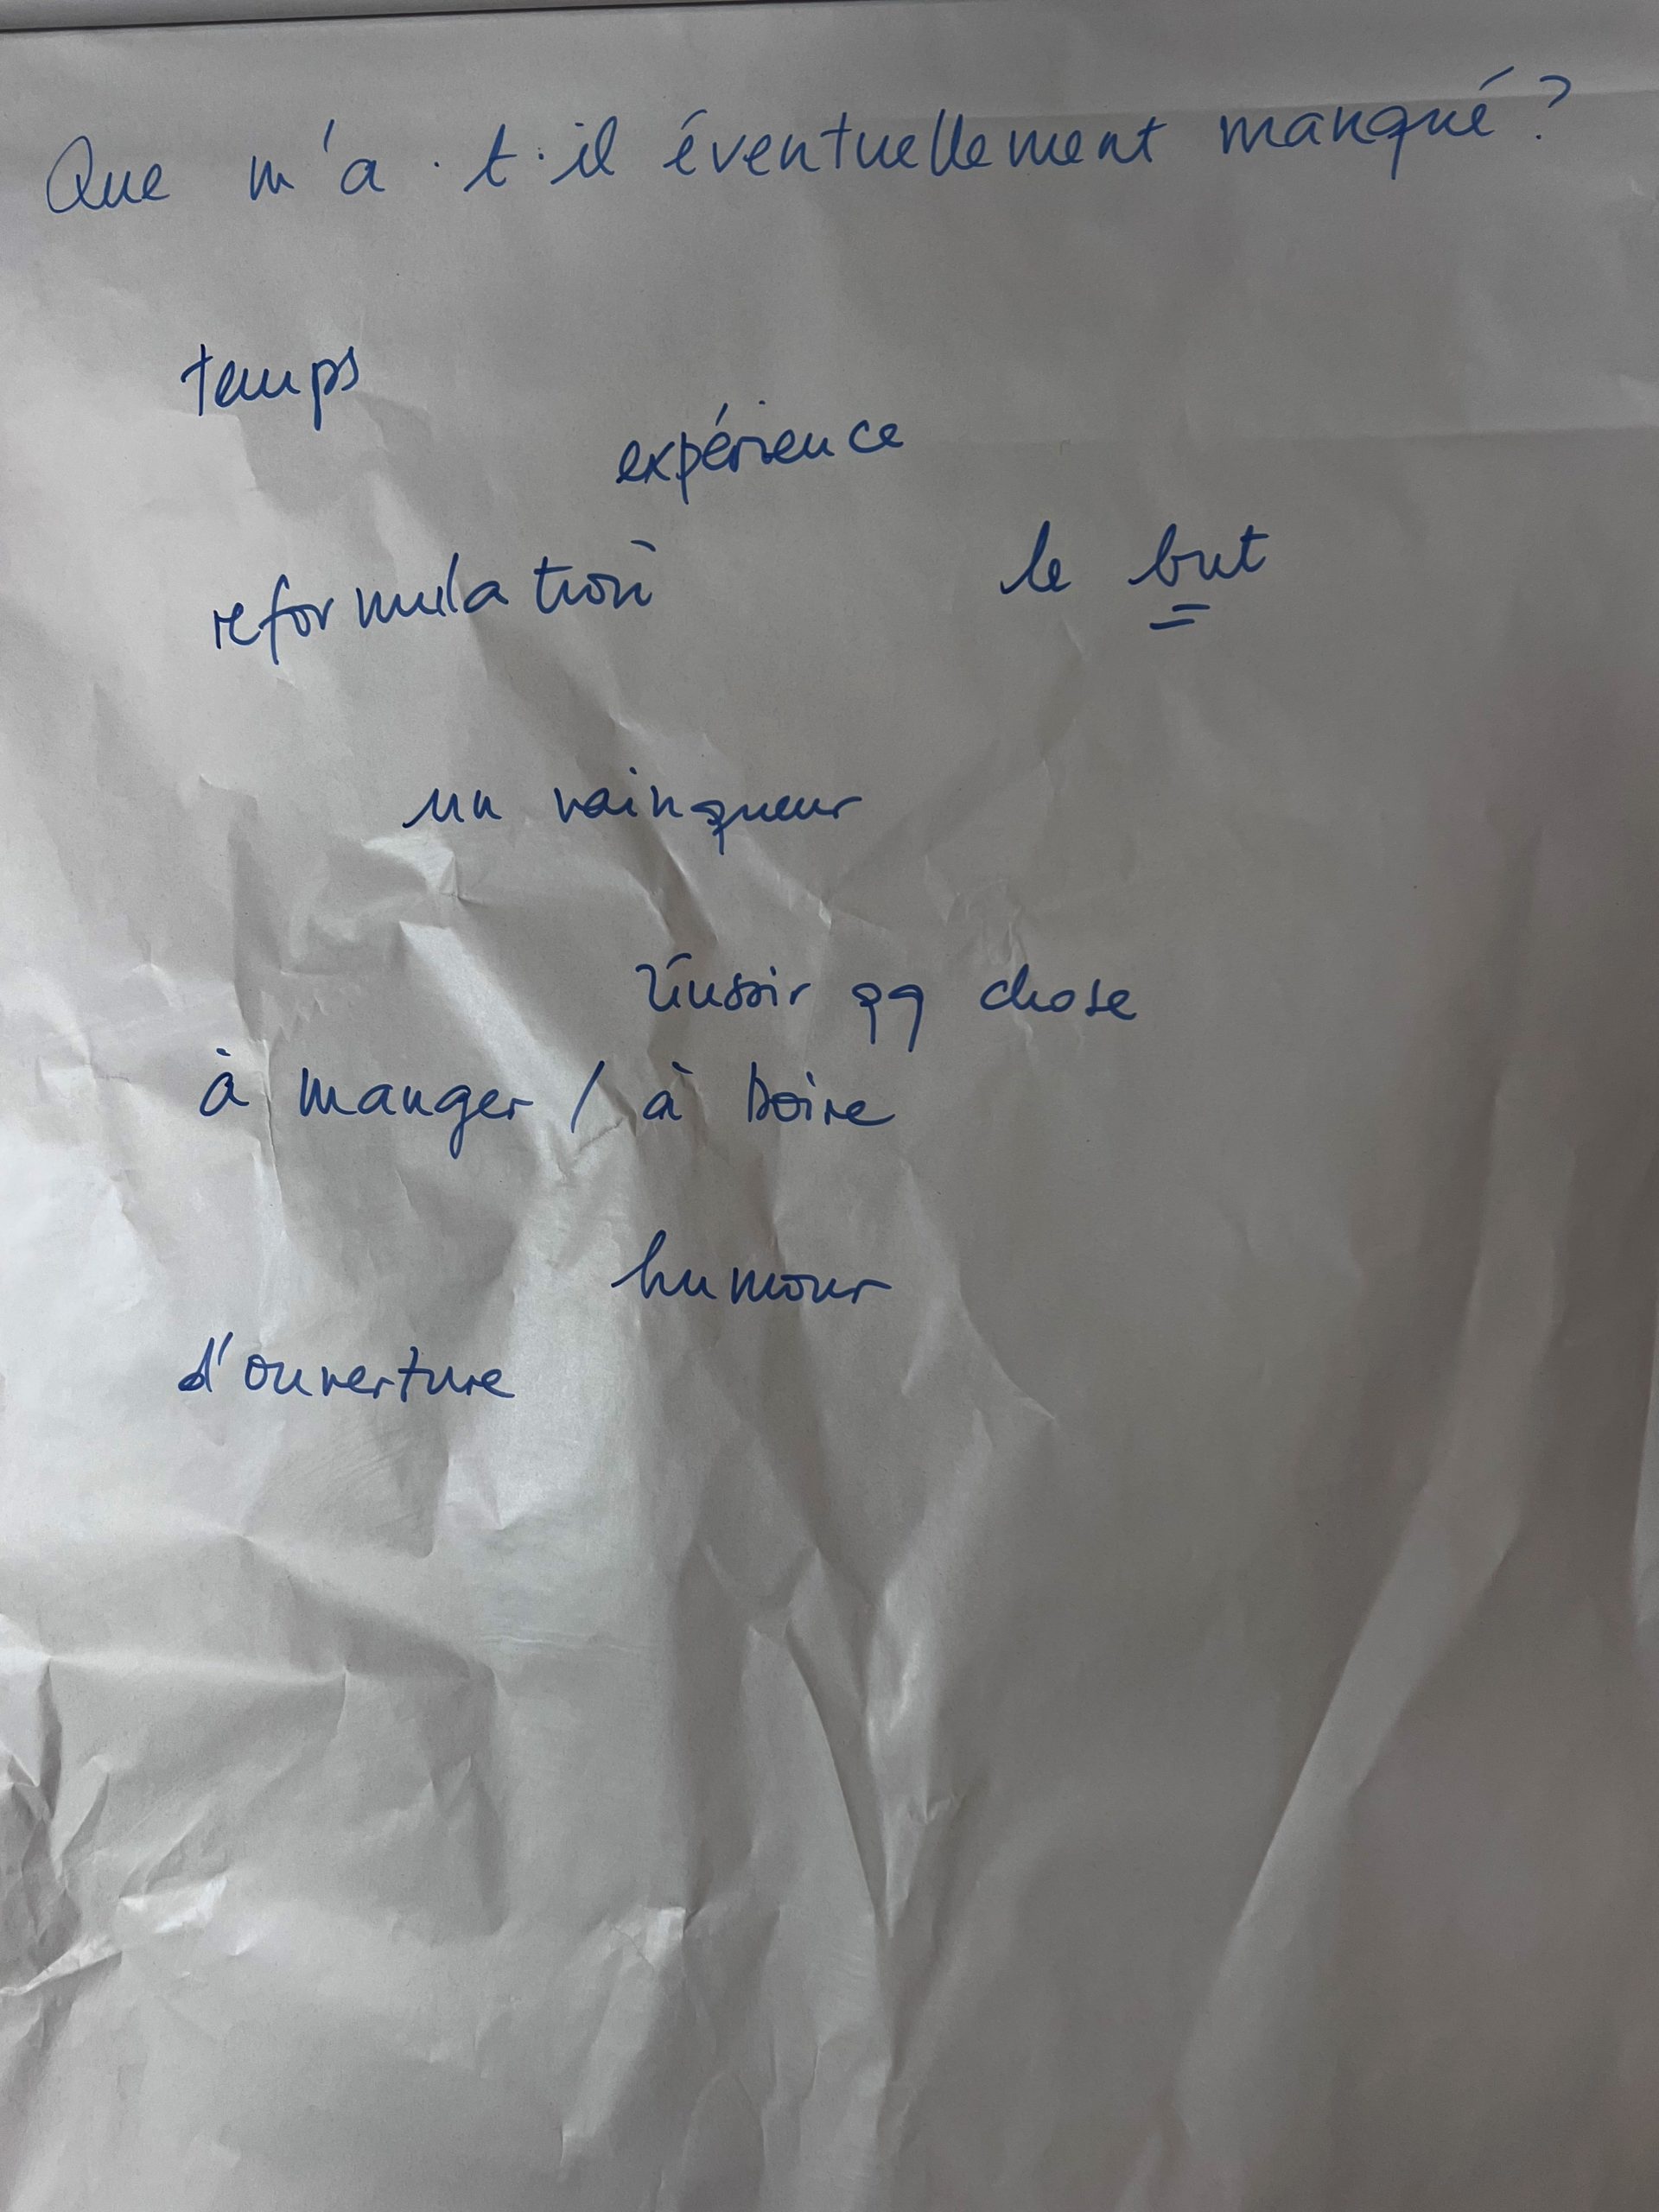 Que m'a-t-il éventuellement manqué ?
temps
expérience
reformulation
le but
un vainqueur
réussir qq chose
à manger / à boire
humour
d'ouverture